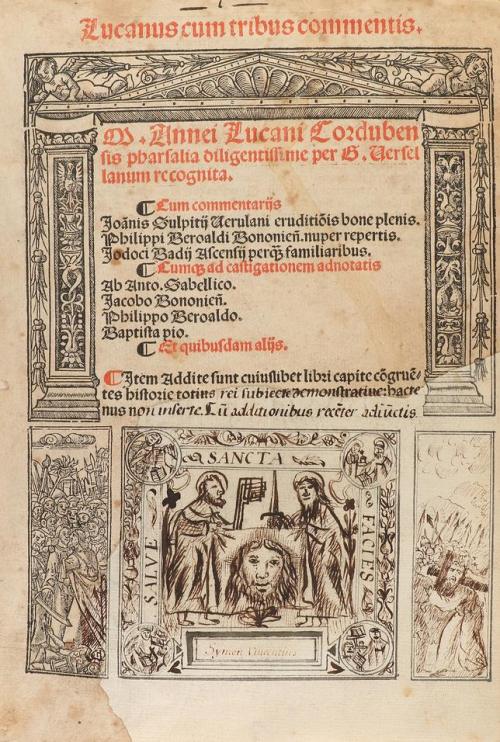 Lucanus cum tribus commentis.
M. Annei Lucani Corduben
sis pharsalia diligentissime per G. Versel
lanum recognita.
Cum commentarijs
Joãnis Sulpitij Verulani eruditiõis bone plenis.
Philippi Beroaldi Bononieñ. nuper repertis.
Jodoci Badij Ascensij perqȝ familiaribus.
Cumqȝ ad castigationem adnotatis
Ab Anto. Sabellico.
Jacobo Bononieñ.
Philippo Beroaldo.
Baptista pio.
Et quibusdam alijs.
Item Addite sunt cuiuslibet libri capite cõgruẽ/
tes historie totius rei subiecte demonstratiue: hacte
nus non inserte. Cũ additionibus recẽter adiũctis.
SANCTA
SALVE
FACIES
Symon Vincentius